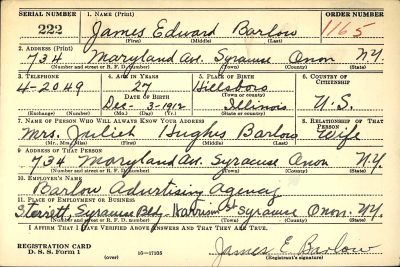 SERIAL NUMBER 1. NAME (Print) ORDER NUMBER
222 James Edward Barlow 1165
(First) (Middle) (Last)
2. ADDRESS (Print)
734 Maryland Av. Syracuse Onon N.Y.
(Number and street or R. F. D. number) (Town) (County) (State)
3. TELEPHONE 4. AGE IN YEARS 5. PLACE OF BIRTH 6. COUNTRY OF CITIZENSHIP
4-2049 27 Hillsboro
DATE OF BIRTH (Town or county)
Dec- 3-1912 Illinois U.S.
(Exchange) (Number) (Mo.) (Day) (Yr.) (State or country)
7. NAME OF PERSON WHO WILL ALWAYS KNOW YOUR ADDRESS 8. RELATIONSHIP OF THAT PERSON
Mrs. Juliet Hughes Barlow Wife
(Mr., Mrs., Miss) (First) (Middle) (Last)
9. ADDRESS OF THAT PERSON
734 Maryland Av. Syracuse Onon N.Y.
(Number and street or R. F. D. number) (Town) (County) (State)
10. EMPLOYER'S NAME
Barlow Advertising Agency
11. PLACE OF EMPLOYMENT OR BUSINESS
Syracuse Bldg- Harrison St Syracuse Onon. N.Y.
(Number and street or R. F. D. number) (Town) (County) (State)
I AFFIRM THAT I HAVE VERIFIED ABOVE ANSWERS AND THAT THEY ARE TRUE.
REGISTRATION CARD
D. S. S. Form 1 16-17105 James E. Barlow
(over) (Registrant's signature)